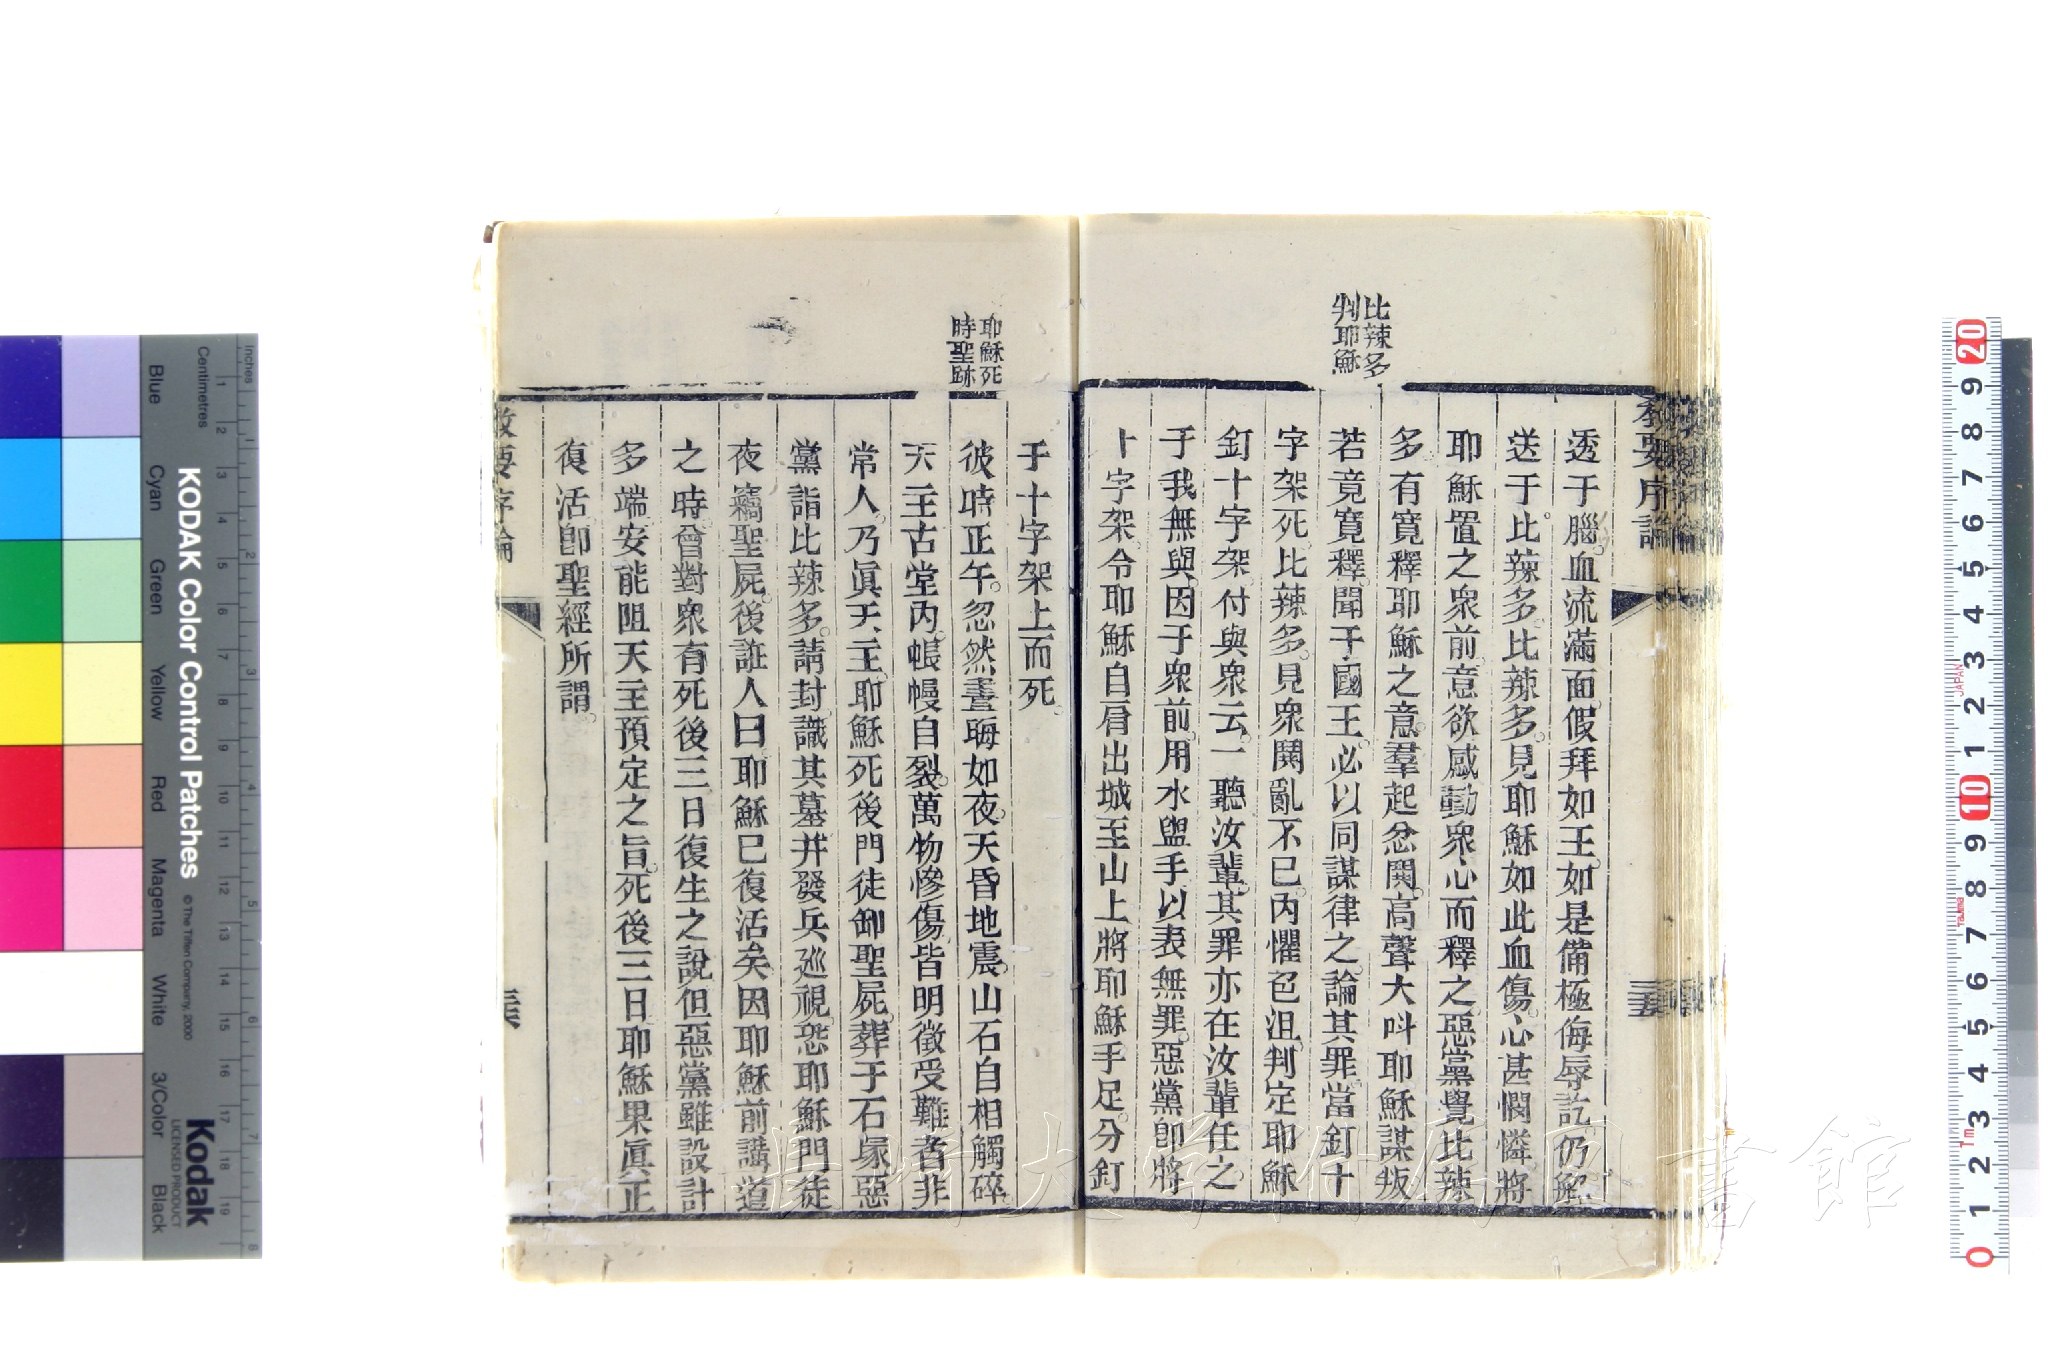 教要序論
比辣多
判耶穌
透于腦。血流滿面。假拜如王。如是備極侮辱訖。仍解
送于比辣多。比辣多。見耶穌如此血傷。心甚憫憐。將
耶穌置之眾前。意欲感動眾心而釋之。惡黨覺比辣
多有寬釋耶穌之意。羣起忿鬨。高聲大叫耶穌謀叛
若竟寬釋。聞于國王。必以同謀律之。論其罪。當釘十
字架死。比辣多。見眾鬨亂不已。內懼色沮。判定耶穌
釘十字架。付與眾云。一聽汝輩。其罪亦在汝輩任之。
于我無與。因于眾前。用水盥手。以表無罪。惡黨卽將
十字架。令耶穌自肩出城至山上。將耶穌手足。分釘
耶穌死
時聖跡
于十字架上而死。
彼時正午。忽然晝晦如夜。天昏地震。山石自相觸碎。
天主古堂內。帳幔自裂。萬物慘傷。皆明徵受難者非
常人。乃眞天主。耶穌死後。門徒卸聖屍。葬于石塚。惡
黨詣比辣多。請封識其墓。并發兵廵視。恐耶穌門徒
夜竊聖屍。後誑人曰。耶穌已復活矣。因耶穌前講道
之時。曾對眾有死後三日復生之說。但惡黨雖設計
多端。安能阻天主預定之旨。死後三日。耶穌果眞正
復活。卽聖經所謂。
教要序論
KODAK Color Control Patches
© The Tiffen Company, 2000
Kodak
LICENSED PRODUCT
Inches
Centimetres
Blue
Cyan
Green
Yellow
Red
Magenta
White
3/Color
Black